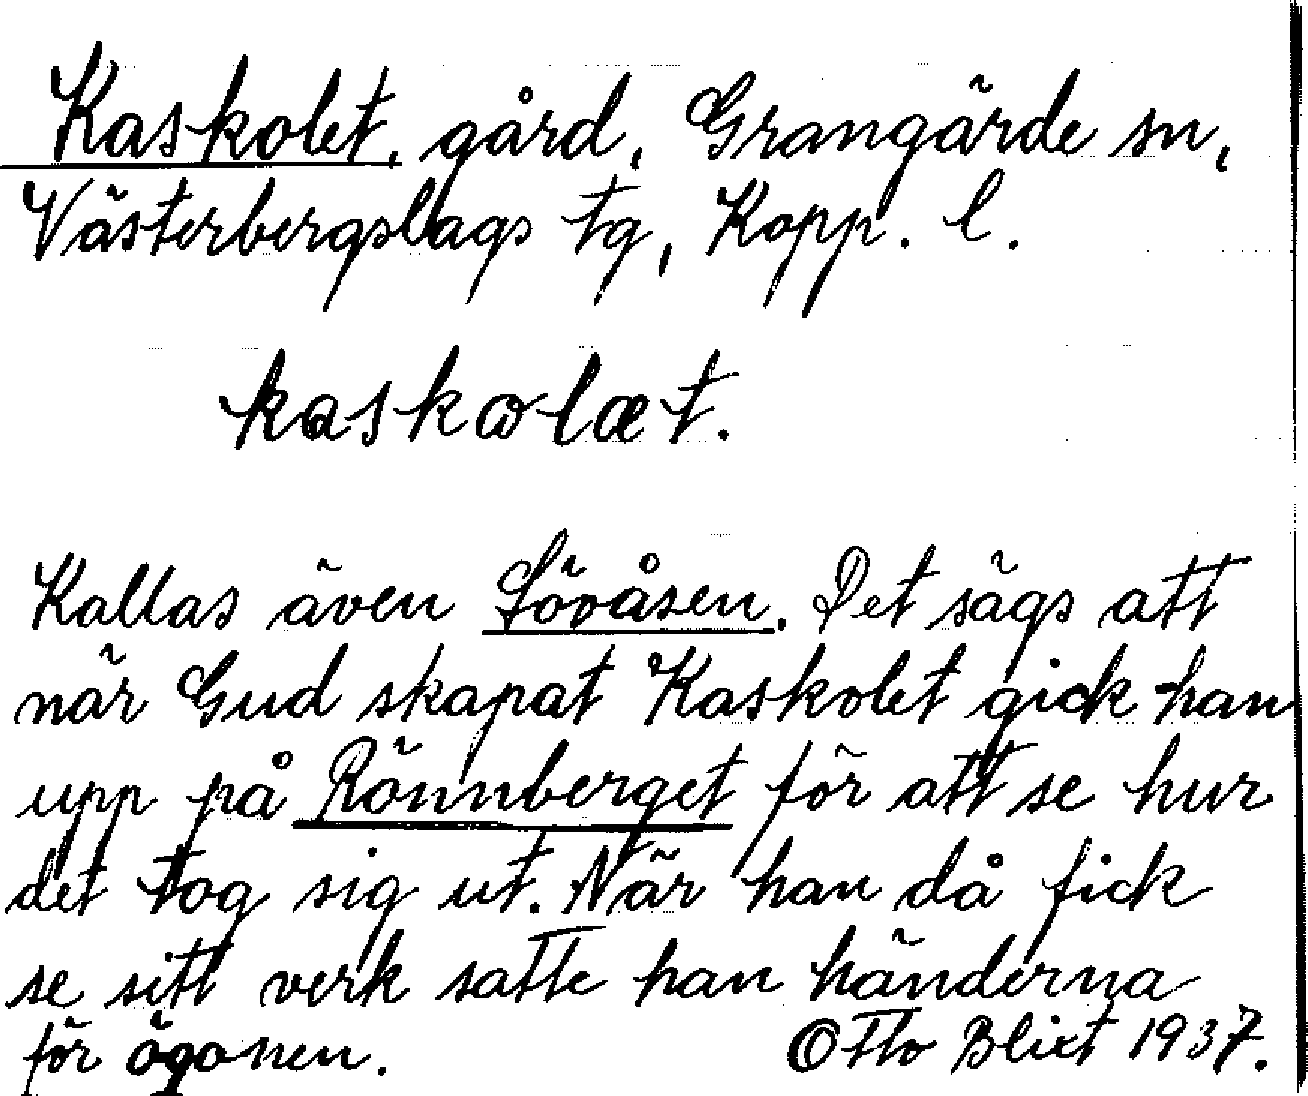 Kaskolet, gård, Grangärde sn,
Västerbergslags tg, Kopp. l.
kaskωlæt.
Kallas även Lövåsen. Det sägs att
när Gud skapat Kaskolet gick han
upp på Rönnberget för att se hur
det tog sig ut. När han då fick
se sitt verk satte han händerna
för ögonen. Otto Blixt 1937.